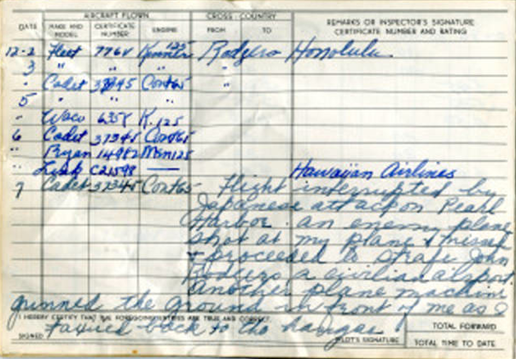 AIRCRAFT FLOWN CROSS-COUNTRY REMARKS OR INSPECTOR'S SIGNATURE
DATE MAKE AND MODEL CERTIFICATE NUMBER ENGINE FROM TO CERTIFICATE NUMBER AND RATING
12-2 Fleet 7764 Kinner 125 Rodgers Honolulu
3 " " " "
" Cadet 37345 Cont65 "
5 " " " "
" Waco 635Y K.125
6 Cadet 37345 Cont65
" Ryan 14982 Men125
" Link C21598 — Hawaiian Airlines
7 Cadet 37345 Cont65 Flight interrupted by
Japanese attack on Pearl
Harbor. an enemy plane
shot at my plane & missed
& proceeded to strafe John
Rodgers a civilian airport
Another plane machine
gunned the ground in front of me as I
I HEREBY CERTIFY THAT THE FOREGOING ENTRIES ARE TRUE AND CORRECT.
taxied back to the hangar
SIGNED PILOT'S SIGNATURE
TOTAL FORWARD
TOTAL TIME TO DATE